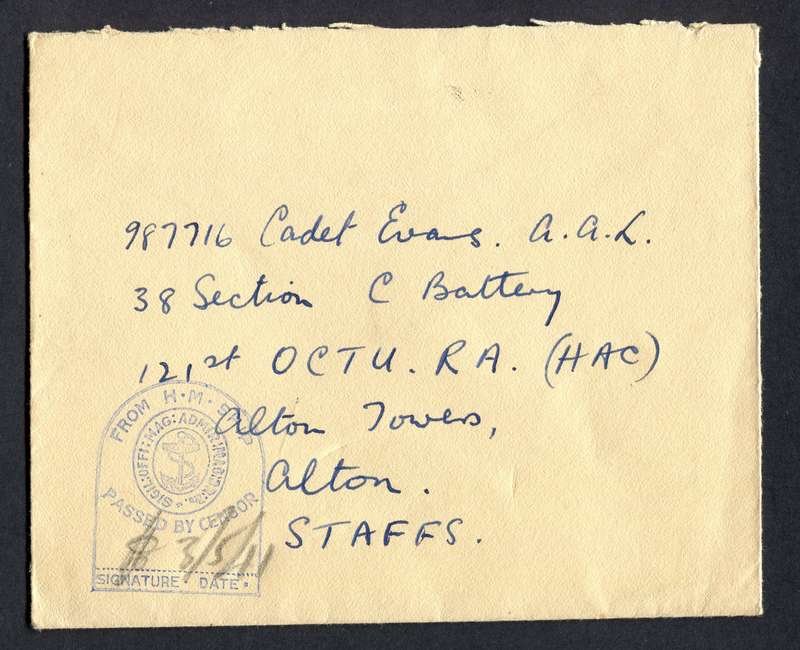 987716 Cadet Evans. A.A.L.
38 Section C Battery
121st OCTU. R.A. (HAC)
Alton Towers,
Alton.
STAFFS.
FROM H·M· SHIP
SIGIL: OFFI: MAG: ADMIR: MAG:
PASSED BY CENSOR
3/5/41
SIGNATURE · DATE ·